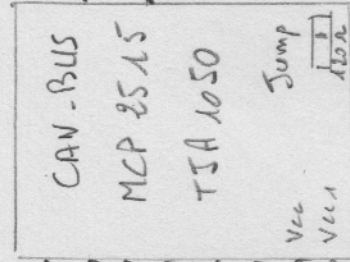 CAN-BUS
MCP 2515
TJA 1050
Jump
120Ω
Vcc
Vcc1